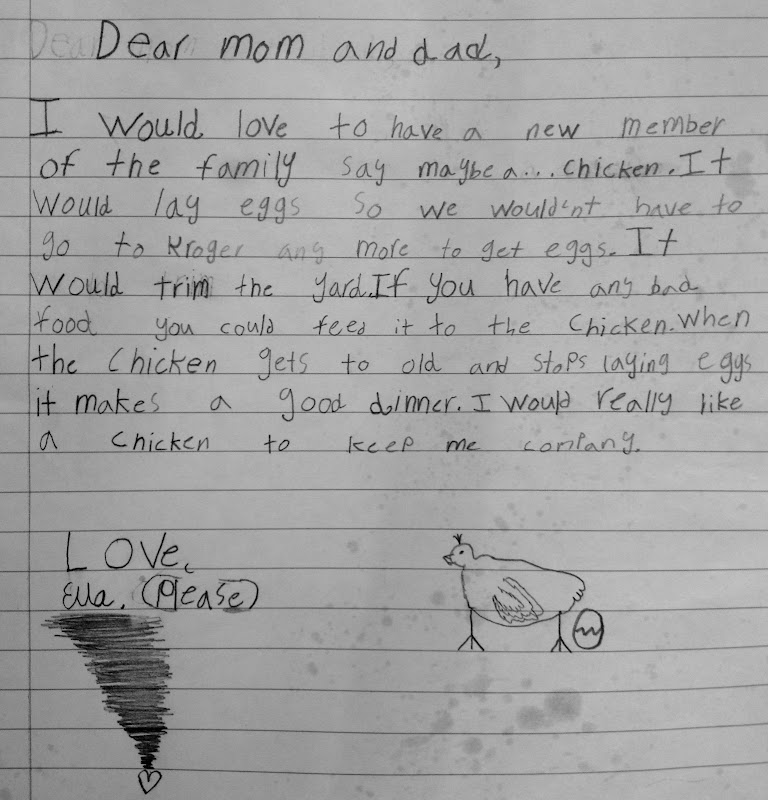 Dear mom and dad,
I would love to have a new member
of the family say maybe a... chicken. It
would lay eggs so we would'nt have to
go to Kroger any more to get eggs. It
would trim the yard. If you have any bad
food you could feed it to the chicken. When
the chicken gets to old and stops laying eggs
it makes a good dinner. I would really like
a chicken to keep me company.
Love,
Ella. (Please)